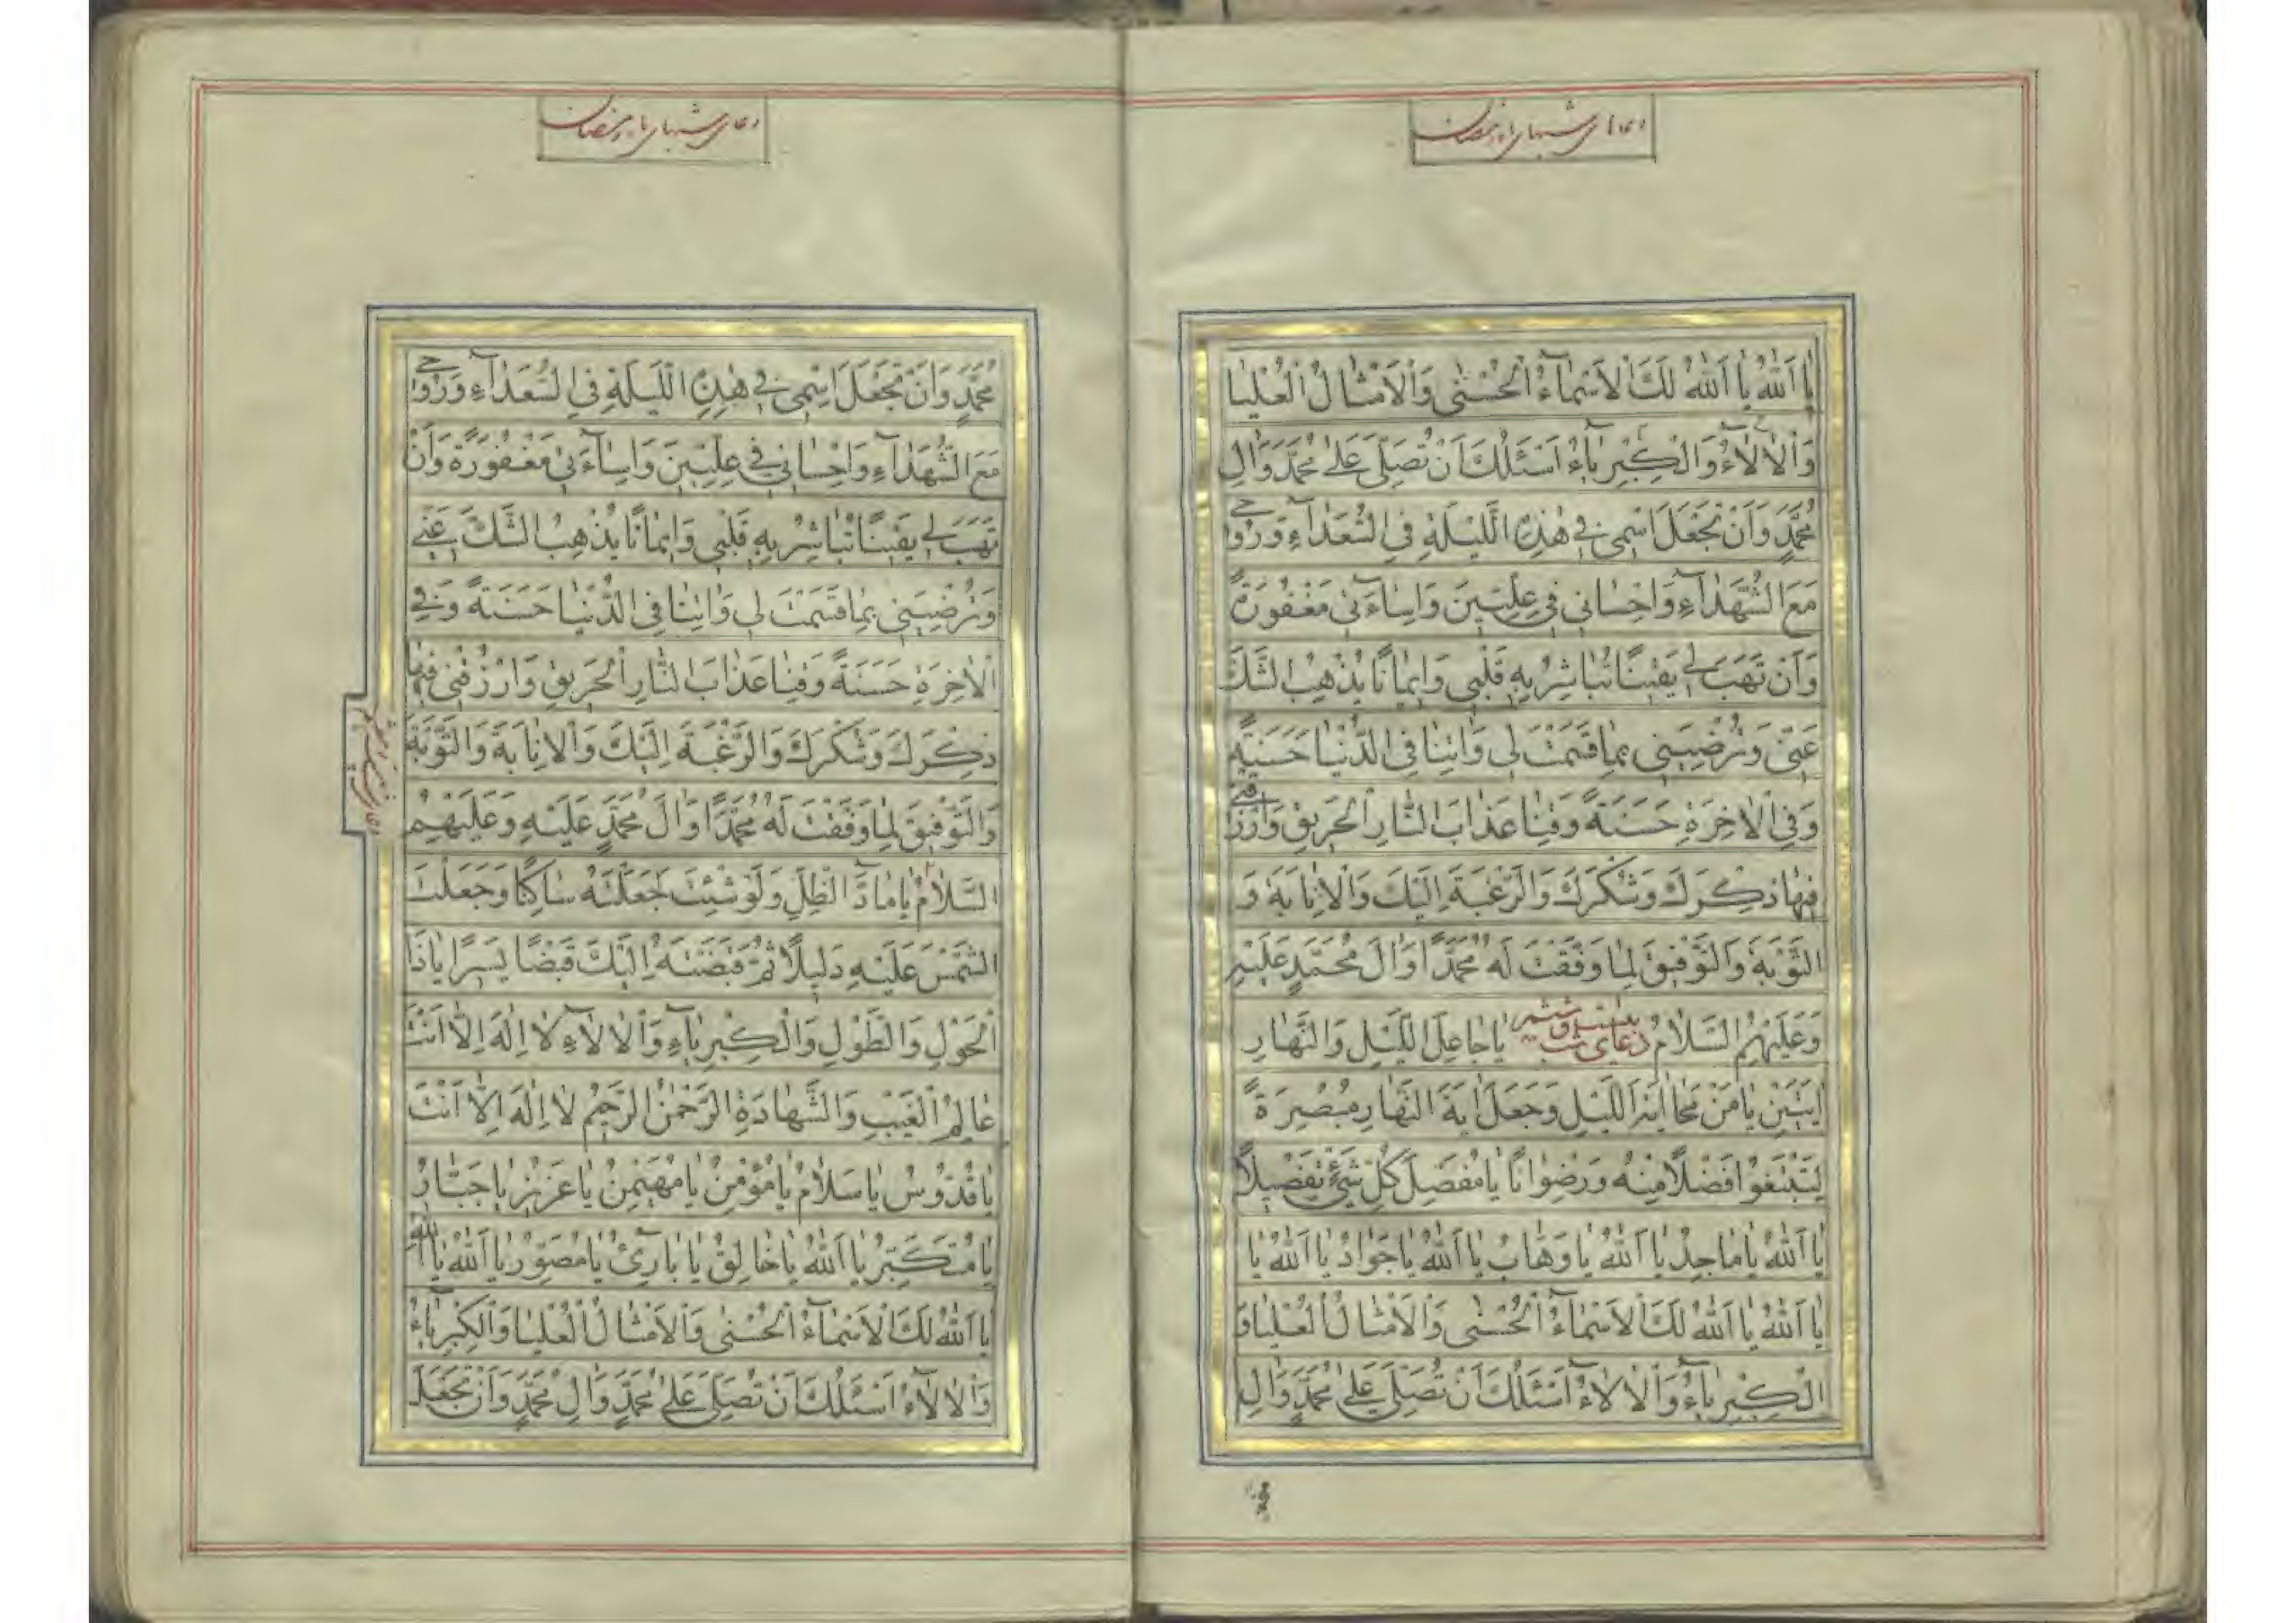 دعای شبهای ماه رمضان
یٰا اَللّٰهُ یٰا اَللّٰهُ لَكَ الْاَسْمٰآءُ الْحُسْنٰى وَالْاَمْثٰالُ الْعُلْیٰا
وَالْاٰلٰآءُ وَالْكِبْرِیٰآءُ اَسْئَلُكَ اَنْ تُصَلِّیَ عَلٰى مُحَمَّدٍ وَاٰلِ
مُحَمَّدٍ وَاَنْ تَجْعَلَ اسْمِی فِی هٰذِهِ اللَّیْلَةِ فِی السُّعَدٰآءِ وَرُوحِی
مَعَ الشُّهَدٰآءِ وَاِحْسٰانِی فِی عِلِّیّٖینَ وَاِسٰآءَتِی مَغْفُورَةً
وَاَنْ تَهَبَ لِی یَقینًا تُبٰاشِرُ بِهِ قَلْبِی وَایمٰانًا یُذْهِبُ الشَّكَّ
عَنِّی وَتُرْضِیَنِی بِمٰا قَسَمْتَ لِی وَاٰتِنٰا فِی الدُّنْیٰا حَسَنَةً
وَفِی الْاٰخِرَةِ حَسَنَةً وَقِنٰا عَذٰابَ النّٰارِ الْحَرِیقِ وَارْزُقْنِی
فِیهٰا ذِكْرَكَ وَشُكْرَكَ وَالرَّغْبَةَ اِلَیْكَ وَالْاِنٰابَةَ وَ
التَّوْبَةَ وَالتَّوْفِیقَ لِمٰا وَفَّقْتَ لَهُ مُحَمَّدًا وَاٰلَ مُحَمَّدٍ عَلَیْهِ
وَعَلَیْهِمُ السَّلٰامُ دعای شب بیست و ششم یٰا جٰاعِلَ اللَّیْلِ وَالنَّهٰارِ
اٰیَتَیْنِ یٰا مَنْ مَحٰا اٰیَةَ اللَّیْلِ وَجَعَلَ اٰیَةَ النَّهٰارِ مُبْصِرَةً
لِتَبْتَغُوا فَضْلًا مِنْهُ وَرِضْوٰانًا یٰا مُفَصِّلَ كُلِّ شَیْءٍ تَفْصِیلًا
یٰا اَللّٰهُ یٰا مٰاجِدُ یٰا اَللّٰهُ یٰا وَهّٰابُ یٰا اَللّٰهُ یٰا جَوٰادُ یٰا اَللّٰهُ یٰا
یٰا اَللّٰهُ یٰا اَللّٰهُ لَكَ الْاَسْمٰآءُ الْحُسْنٰى وَالْاَمْثٰالُ الْعُلْیٰا وَ
الْكِبْرِیٰآءُ وَالْاٰلٰآءُ اَسْئَلُكَ اَنْ تُصَلِّیَ عَلٰى مُحَمَّدٍ وَاٰلِ
دعای شبهای ماه رمضان
مُحَمَّدٍ وَاَنْ تَجْعَلَ اسْمِی فِی هٰذِهِ اللَّیْلَةِ فِی السُّعَدٰآءِ وَرُوحِی
مَعَ الشُّهَدٰآءِ وَاِحْسٰانِی فِی عِلِّیِّینَ وَاِسٰآءَتِی مَغْفُورَةً وَاَنْ
تَهَبَ لِی یَقِینًا تُبٰاشِرُ بِهِ قَلْبِی وَاِیمٰانًا یُذْهِبُ الشَّكَّ عَنِّی
وَتُرْضِیَنِی بِمٰا قَسَمْتَ لِی وَاٰتِنٰا فِی الدُّنْیٰا حَسَنَةً وَفِی
الْاٰخِرَةِ حَسَنَةً وَقِنٰا عَذٰابَ النّٰارِ الْحَرِیقِ وَارْزُقْنِی فِیهٰا
ذِكْرَكَ وَشُكْرَكَ وَالرَّغْبَةَ اِلَیْكَ وَالْاِنٰابَةَ وَالتَّوْبَةَ
وَالتَّوْفِیقَ لِمٰا وَفَّقْتَ لَهُ مُحَمَّدًا وَاٰلَ مُحَمَّدٍ عَلَیْهِ وَعَلَیْهِمُ
السَّلٰامُ یٰا مٰادَّ الظِّلِّ وَلَوْ شِئْتَ جَعَلْتَهُ سٰاكِنًا وَجَعَلْتَ
الشَّمْسَ عَلَیْهِ دَلِیلًا ثُمَّ قَبَضْتَهُ اِلَیْكَ قَبْضًا یَسِیرًا یٰا ذَا
الْحَوْلِ وَالطَّوْلِ وَالْكِبْرِیٰآءِ وَالْاٰلٰآءِ لٰا اِلٰهَ اِلّٰا اَنْتَ
عٰالِمُ الْغَیْبِ وَالشَّهٰادَةِ الرَّحْمٰنُ الرَّحِیمُ لٰا اِلٰهَ اِلّٰا اَنْتَ
یٰا قُدُّوسُ یٰا سَلٰامُ یٰا مُؤْمِنُ یٰا مُهَیْمِنُ یٰا عَزِیزُ یٰا جَبّٰارُ
یٰا مُتَكَبِّرُ یٰا اَللّٰهُ یٰا خٰالِقُ یٰا بٰارِئُ یٰا مُصَوِّرُ یٰا اَللّٰهُ یٰا اَللّٰهُ
یٰا اَللّٰهُ لَكَ الْاَسْمٰآءُ الْحُسْنٰى وَالْاَمْثٰالُ الْعُلْیٰا وَالْكِبْرِیٰآءُ
وَالْاٰلٰآءُ اَسْئَلُكَ اَنْ تُصَلِّیَ عَلٰى مُحَمَّدٍ وَاٰلِ مُحَمَّدٍ وَاَنْ تَجْعَلَ